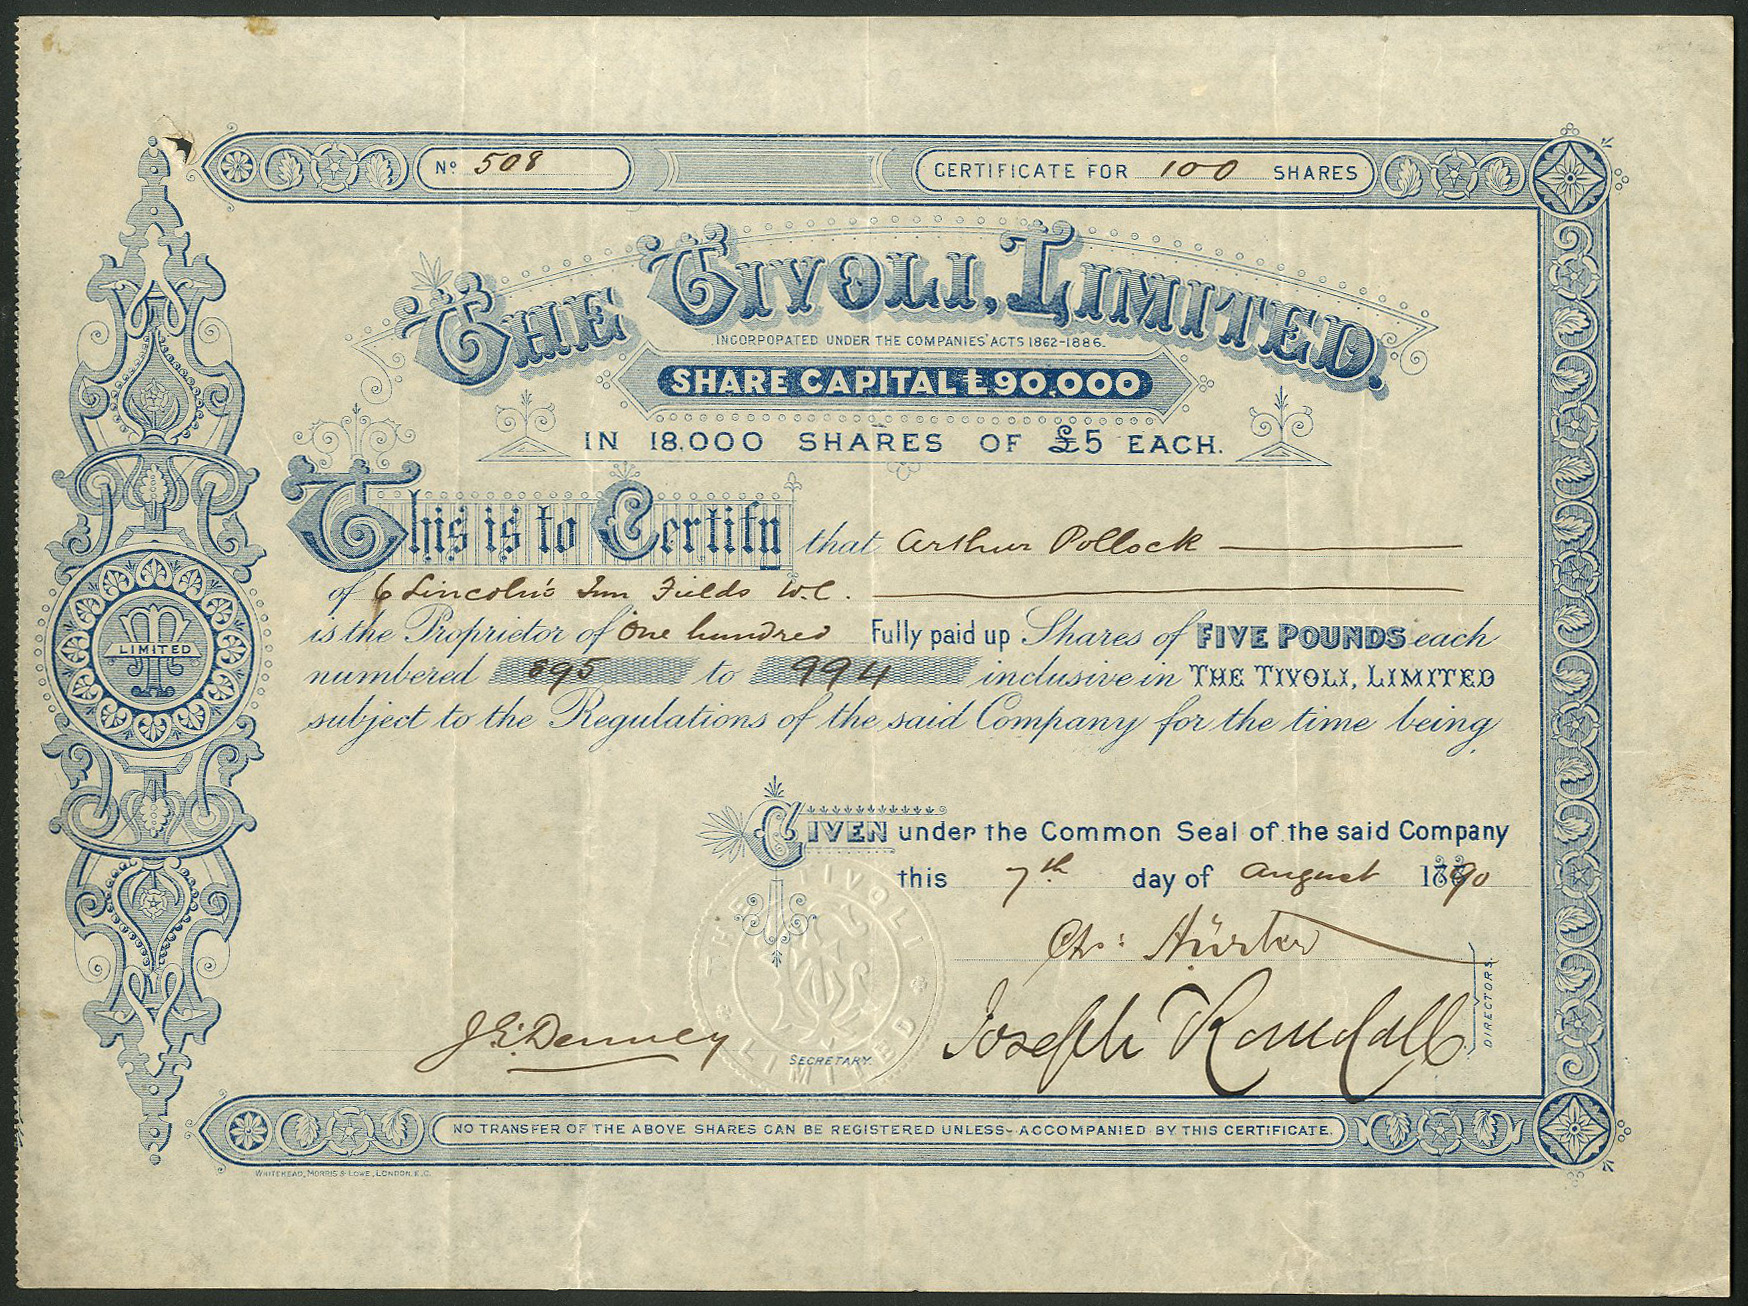 No 508
CERTIFICATE FOR 100 SHARES
THE TIVOLI, LIMITED.
INCORPOPATED UNDER THE COMPANIES' ACTS 1862-1886.
SHARE CAPITAL £90,000
IN 18,000 SHARES OF £5 EACH.
This is to Certify that Arthur Pollock
of 6 Lincoln's Inn Fields W.C.
is the Proprietor of One hundred Fully paid up Shares of FIVE POUNDS each
numbered 895 to 994 inclusive in THE TIVOLI, LIMITED
subject to the Regulations of the said Company for the time being
LIMITED
GIVEN under the Common Seal of the said Company
this 7th day of August 1890
THE TIVOLI LIMITED
Joseph Randall
DIRECTORS.
SECRETARY.
NO TRANSFER OF THE ABOVE SHARES CAN BE REGISTERED UNLESS ACCOMPANIED BY THIS CERTIFICATE.
WHITEHEAD, MORRIS & LOWE, LONDON, E.C.